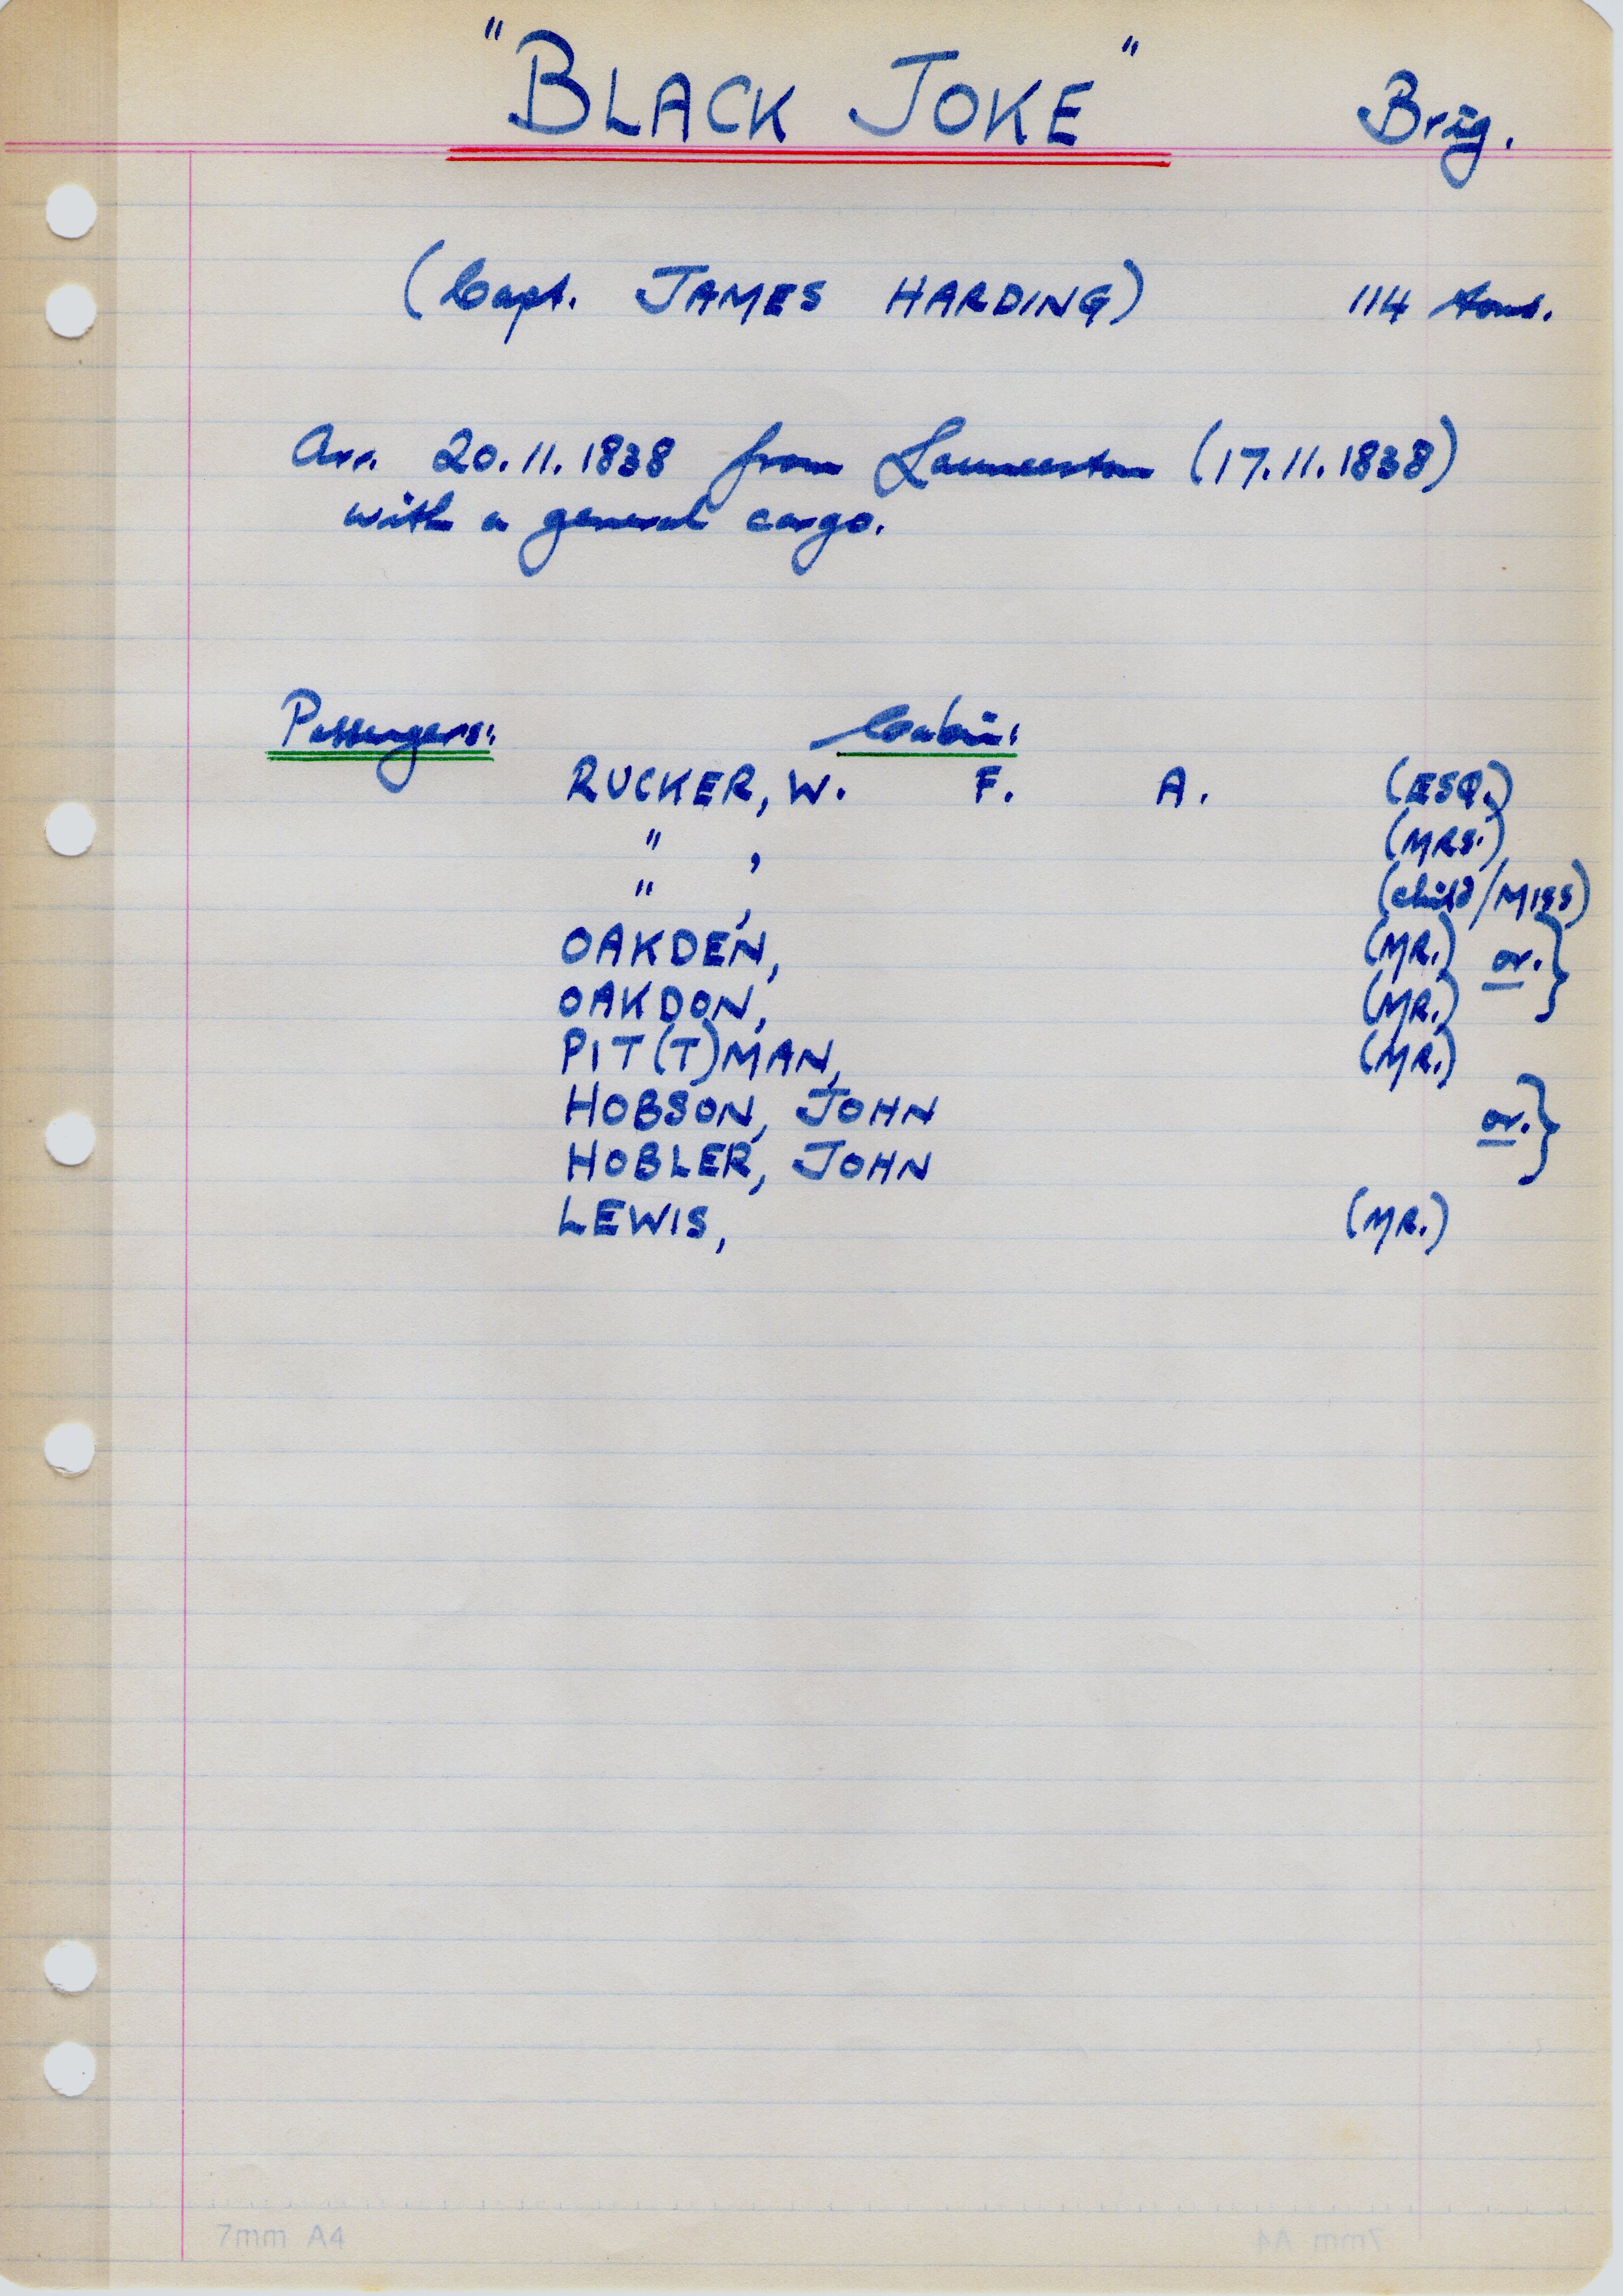 "BLACK JOKE" Brig.
(Capt. JAMES HARDING) 114 tons.
Arr. 20.11.1838 from Launceston (17.11.1838)
with a general cargo.
Passengers: Cabin:
RUCKER, W. F. A. (ESQ.)
" , (MRS.)
" , (child/MISS)
OAKDEN, (MR.) or. }
OAKDON, (MR.)
PIT(T)MAN, (MR.)
HOBSON, JOHN or. }
HOBLER, JOHN
LEWIS, (MR.)
7mm A4 7mm A4